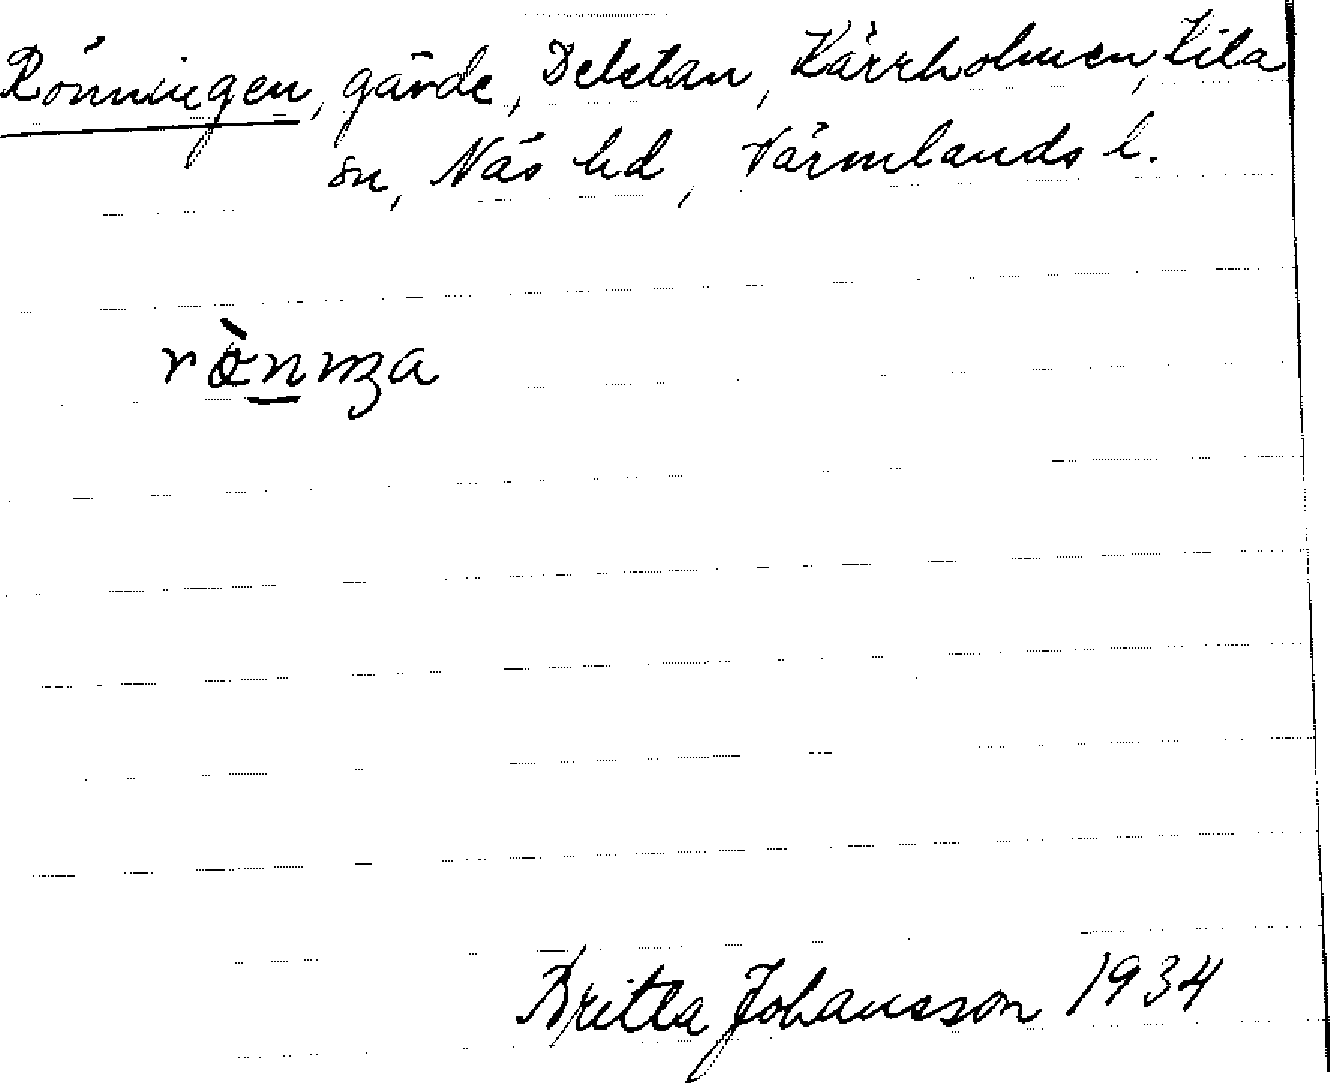 Rönningen, gärde, Deletan, Kärrholmen, Kila
sn, Näs hd, Värmlands l.
Britta Johansson 1934